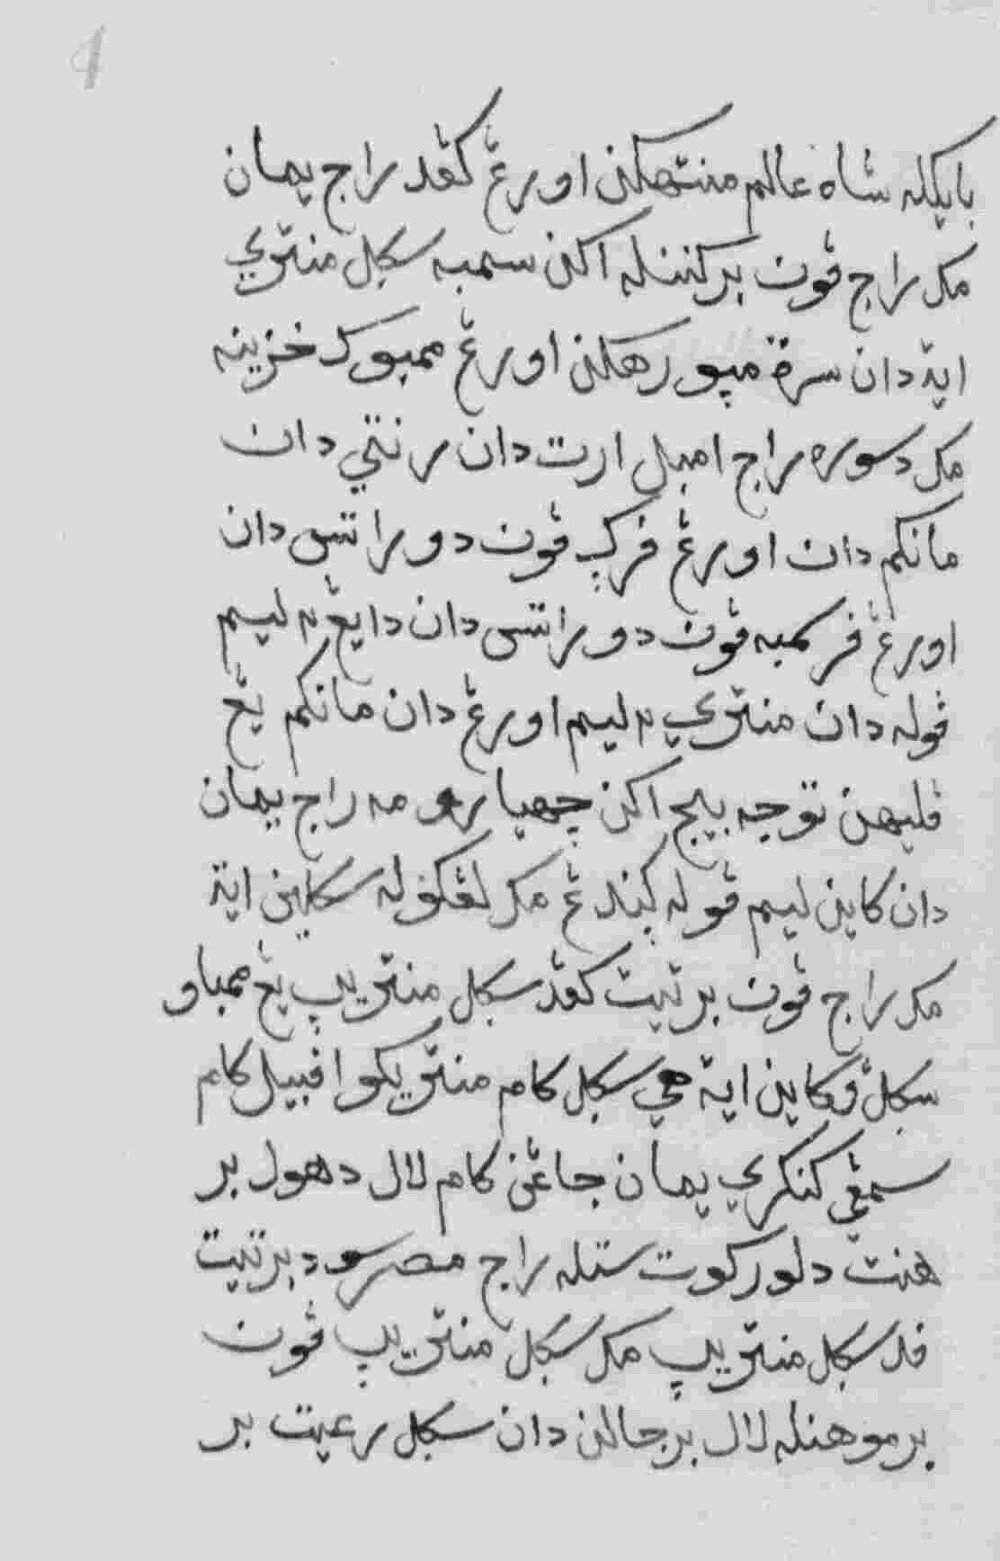 بايکله شاه عالم منتهکن اورڠ کڤد راج يمان
مک راج ڤون برکننله اکن سمبه سکل منتري
ايت دان سرة مڽورهکن اورڠ ممبوک خزينه
مک دسوره راج امبل ارت دان رنتي دان
مانکم دان اورڠ فرک ڤون دوراتس دان
اورڠ فرکمبه ڤون دوراتس دان دايڠ۲ ليم
ڤوله دان منتري۲ ليم اورڠ دان مانکم يڠ
ڤليهن توجه بيج اکن چهيارو مه راج يمان
دان کاين ليم ڤوله کندڠ مک لڠکڤله سکلين ايت
مک راج ڤون برتيت کڤد سکل منتريڽ يڠ ممباو
سکل ڤکاين ايت هي سکل کام منتريکو امبيل کام
سمڤي کنکري يمان جاڠن کام لالى دهول بر
هنت دلور کوت ستله راج مصر سود برتيت
ڤد سکل منتريڽ مک سکل منتريڽ ڤون
برموهنله لال برجالن دان سکل رعيت بر